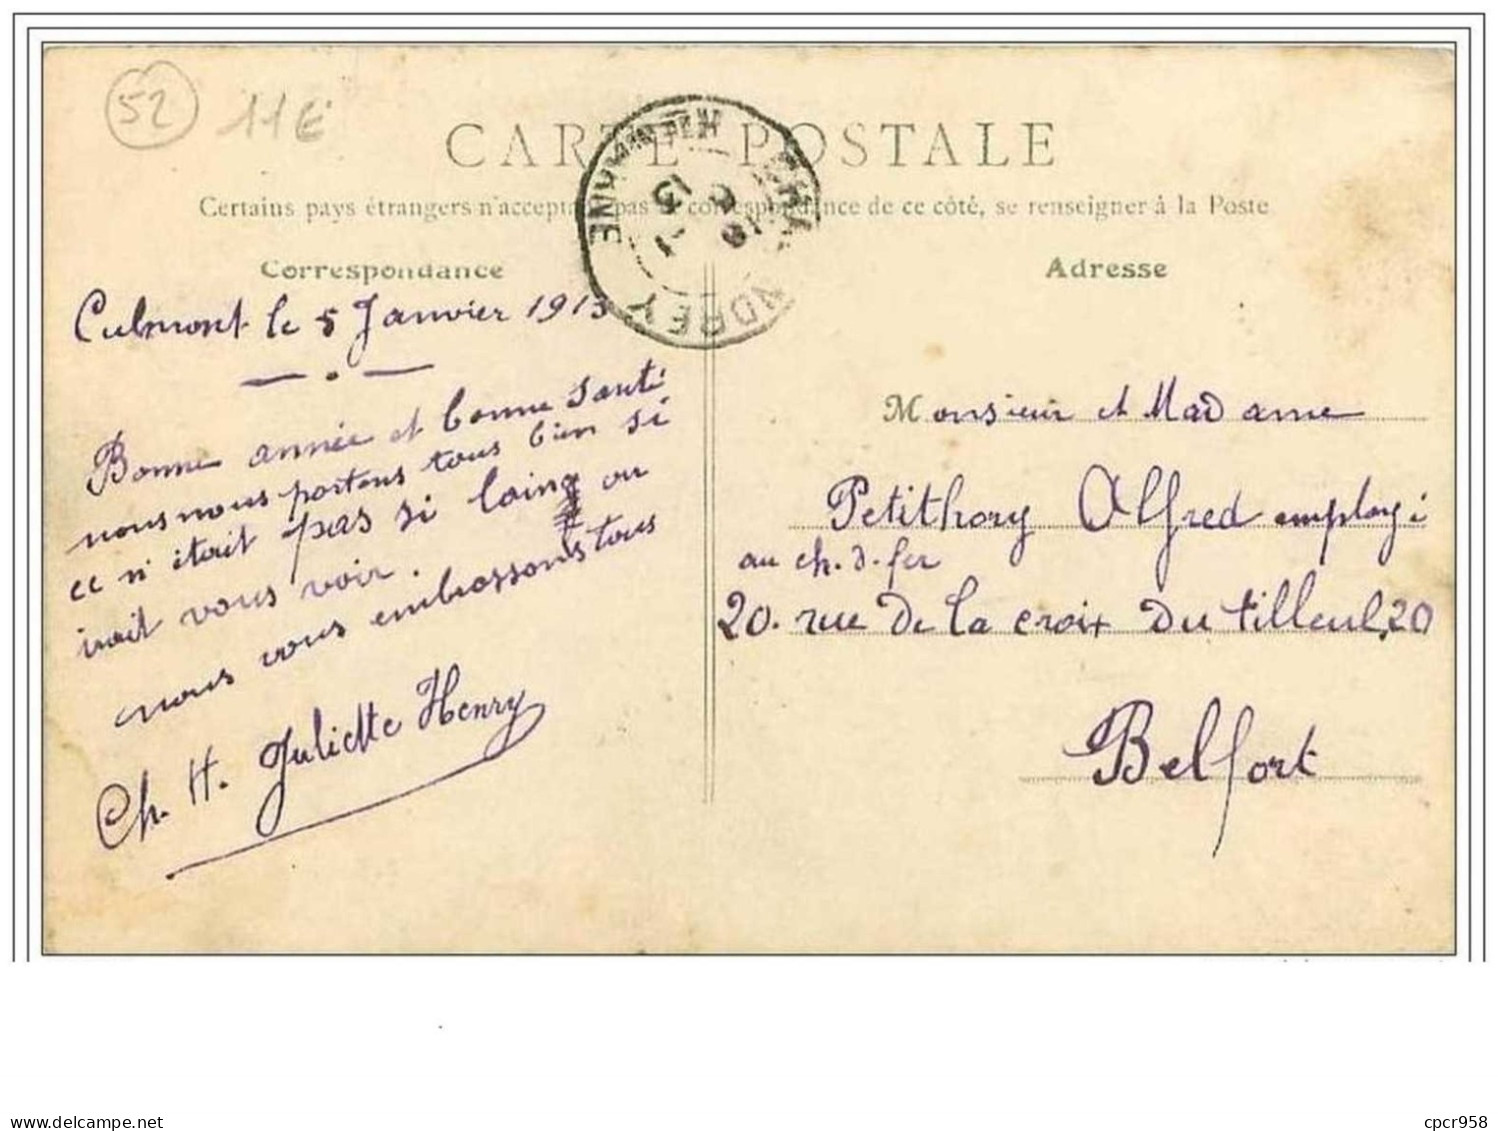 52 11E
CARTE POSTALE
Certains pays étrangers n'acceptant pas de correspondance de ce côté, se renseigner à la Poste
Correspondance
Culmont le 5 Janvier 1913
Bonne année et bonne Santé
nous nous portons tous bien si
ce n'était pas si loing on
irait vous voir.
nous vous embrassons tous
Ch. H. Juliette Henry
HTE MARNE
13
NDREY
Adresse
Monsieur et Madame
Petithory Alfred employé
au ch. d. fer
20. rue De la croix Du tilleul, 20
Belfort
cpcr958